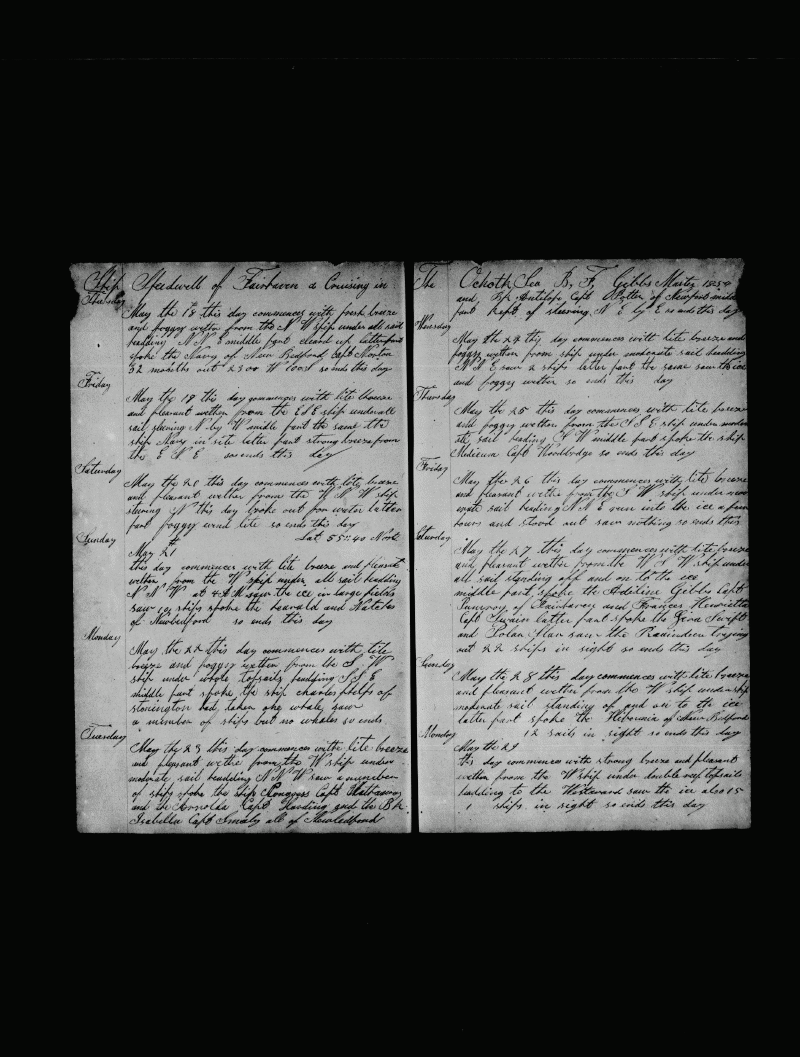 Ship Speedwell of Fairhaven a Cruising in
Thursday
May the 18 this day commences with fresh breeze
and foggy wether from the N W ship under all sail
heading N N E middle part cleard up latter part
spoke the Navy of New Bedford Capt Norton
32 months out 2300 W so ends this day
Friday
May the 19 this day commences with lite breeze
and pleasant wether from the E S E ship under all
sail stering N by W middle part the same the
ship Navy in site latter part strong breeze from
the E S E so ends this day
Saturday
May the 20 this day commences with lite breeze
and pleasant wether from the W N W ship
stering N this day broke out for water latter
part foggy wind lite so ends this day
Lat 55°:40 North
Sunday
May 21th
this day commences with lite breeze and pleasant
wether from the W ship under all sail heading
N N W at 4 P M saw the ice in large fields
saw 10 ships spoke the hearald and
of New bedford so ends this day
Monday
May the 22 this day commences with lite
breeze and foggy wether from the S W
ship under whole topsails heading S S E
middle part spoke the ship charles phelps of
stonington had taken one whale saw
a number of ships but no whales so ends
Tuesday
May the 23 this day commences with lite breeze
and plesant wether from the W ship under
moderate sail heading N N W saw a number
of ships spoke the ship Congress Capt
and the Arnolda Capt Harding and the Bk
Isabella Capt all of New bedford
The Ochoth Sea B, F, Gibbs Master 1854
and Capt Potter of Newport middle
part kept of steering N E by E so ends this day
Wensday
May the 24 this day commences with lite breeze and
foggy wether from ship under moderate sail heading
N N E saw 2 ships latter part the same saw the ice
and foggy wether so ends this day
Thursday
May the 25 this day commences with lite breeze
and foggy wether from the S S E ship under moder
ate sail heading S W middle part spoke the ship
Capt Woodbridge so ends this day
Friday
May the 26 this day commences with lite breeze
and pleasant wether from the S W ship under mod
erate sail heading N N E run into the ice a few
hours and stood out saw nothing so ends this
Saturday
May the 27 this day commences with lite breeze
and pleasant wether from the W S W ship under
all sail standing off and on to the ice
middle part spoke the Adeline Gibbs Capt
Pumroy of Fairhaven and Frances Henrietta
Capt Swain latter part spoke the Liva Swift
and Polar Star saw the trying
out 22 ships in sight so ends this day
Sunday
May the 28 this day commences with lite breeze
and pleasant wether from the W ship under
moderate sail standing of and on to the ice
latter part spoke the Hibernia of New Bedford
12 sails in sight so ends this day
Monday
May the 29
this day commences with strong breeze and pleasant
wether from the W ship under double reef topsails
heading to the Westward saw the ice also 15
ships in sight so ends this day